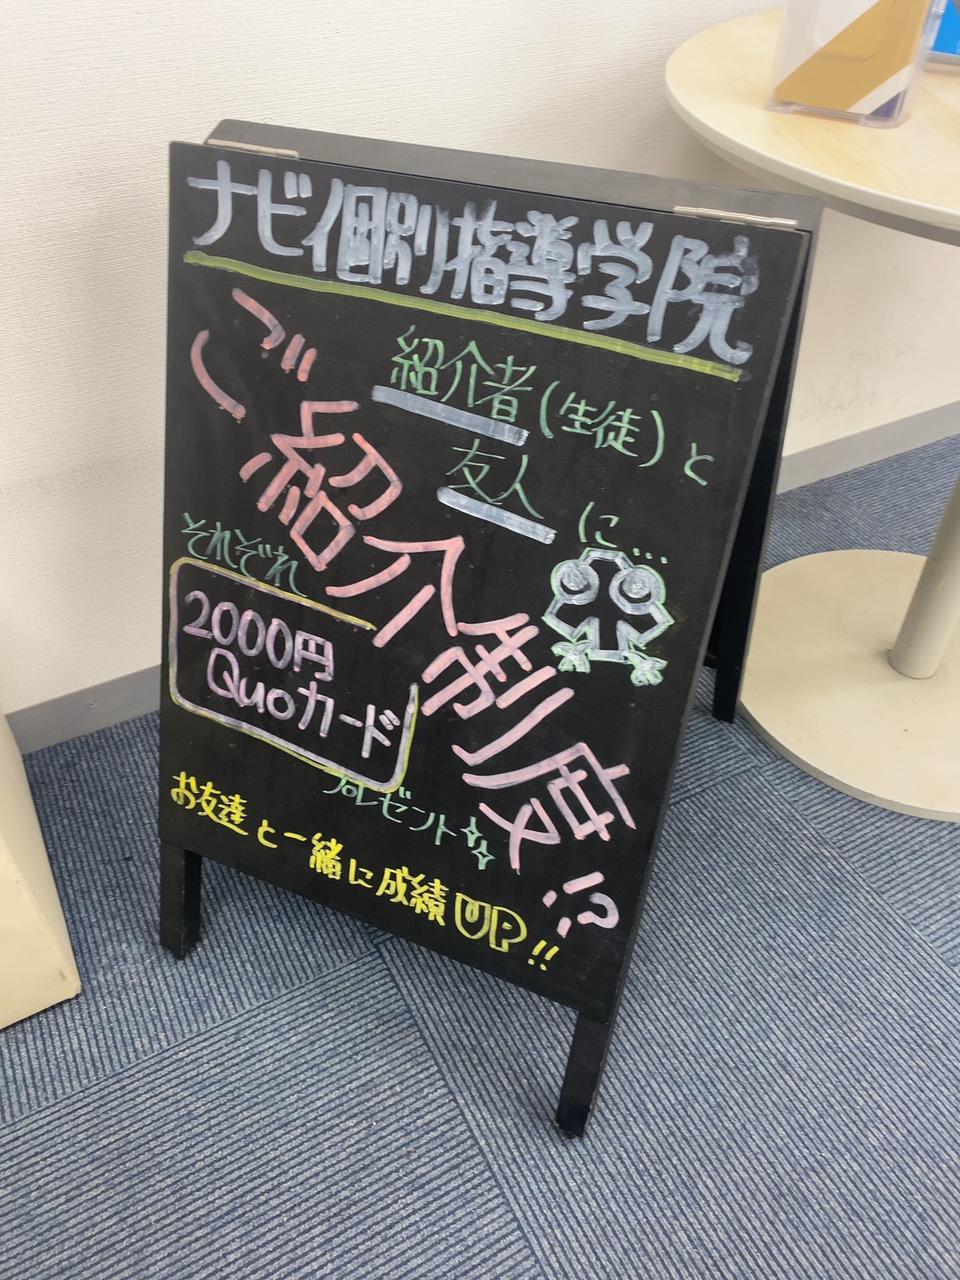 ナビ個別指導学院
ご紹介制度!?
紹介者(生徒)と
友人に…
それぞれ
2000円
Quoカード
プレゼント
お友達と一緒に成績UP!!